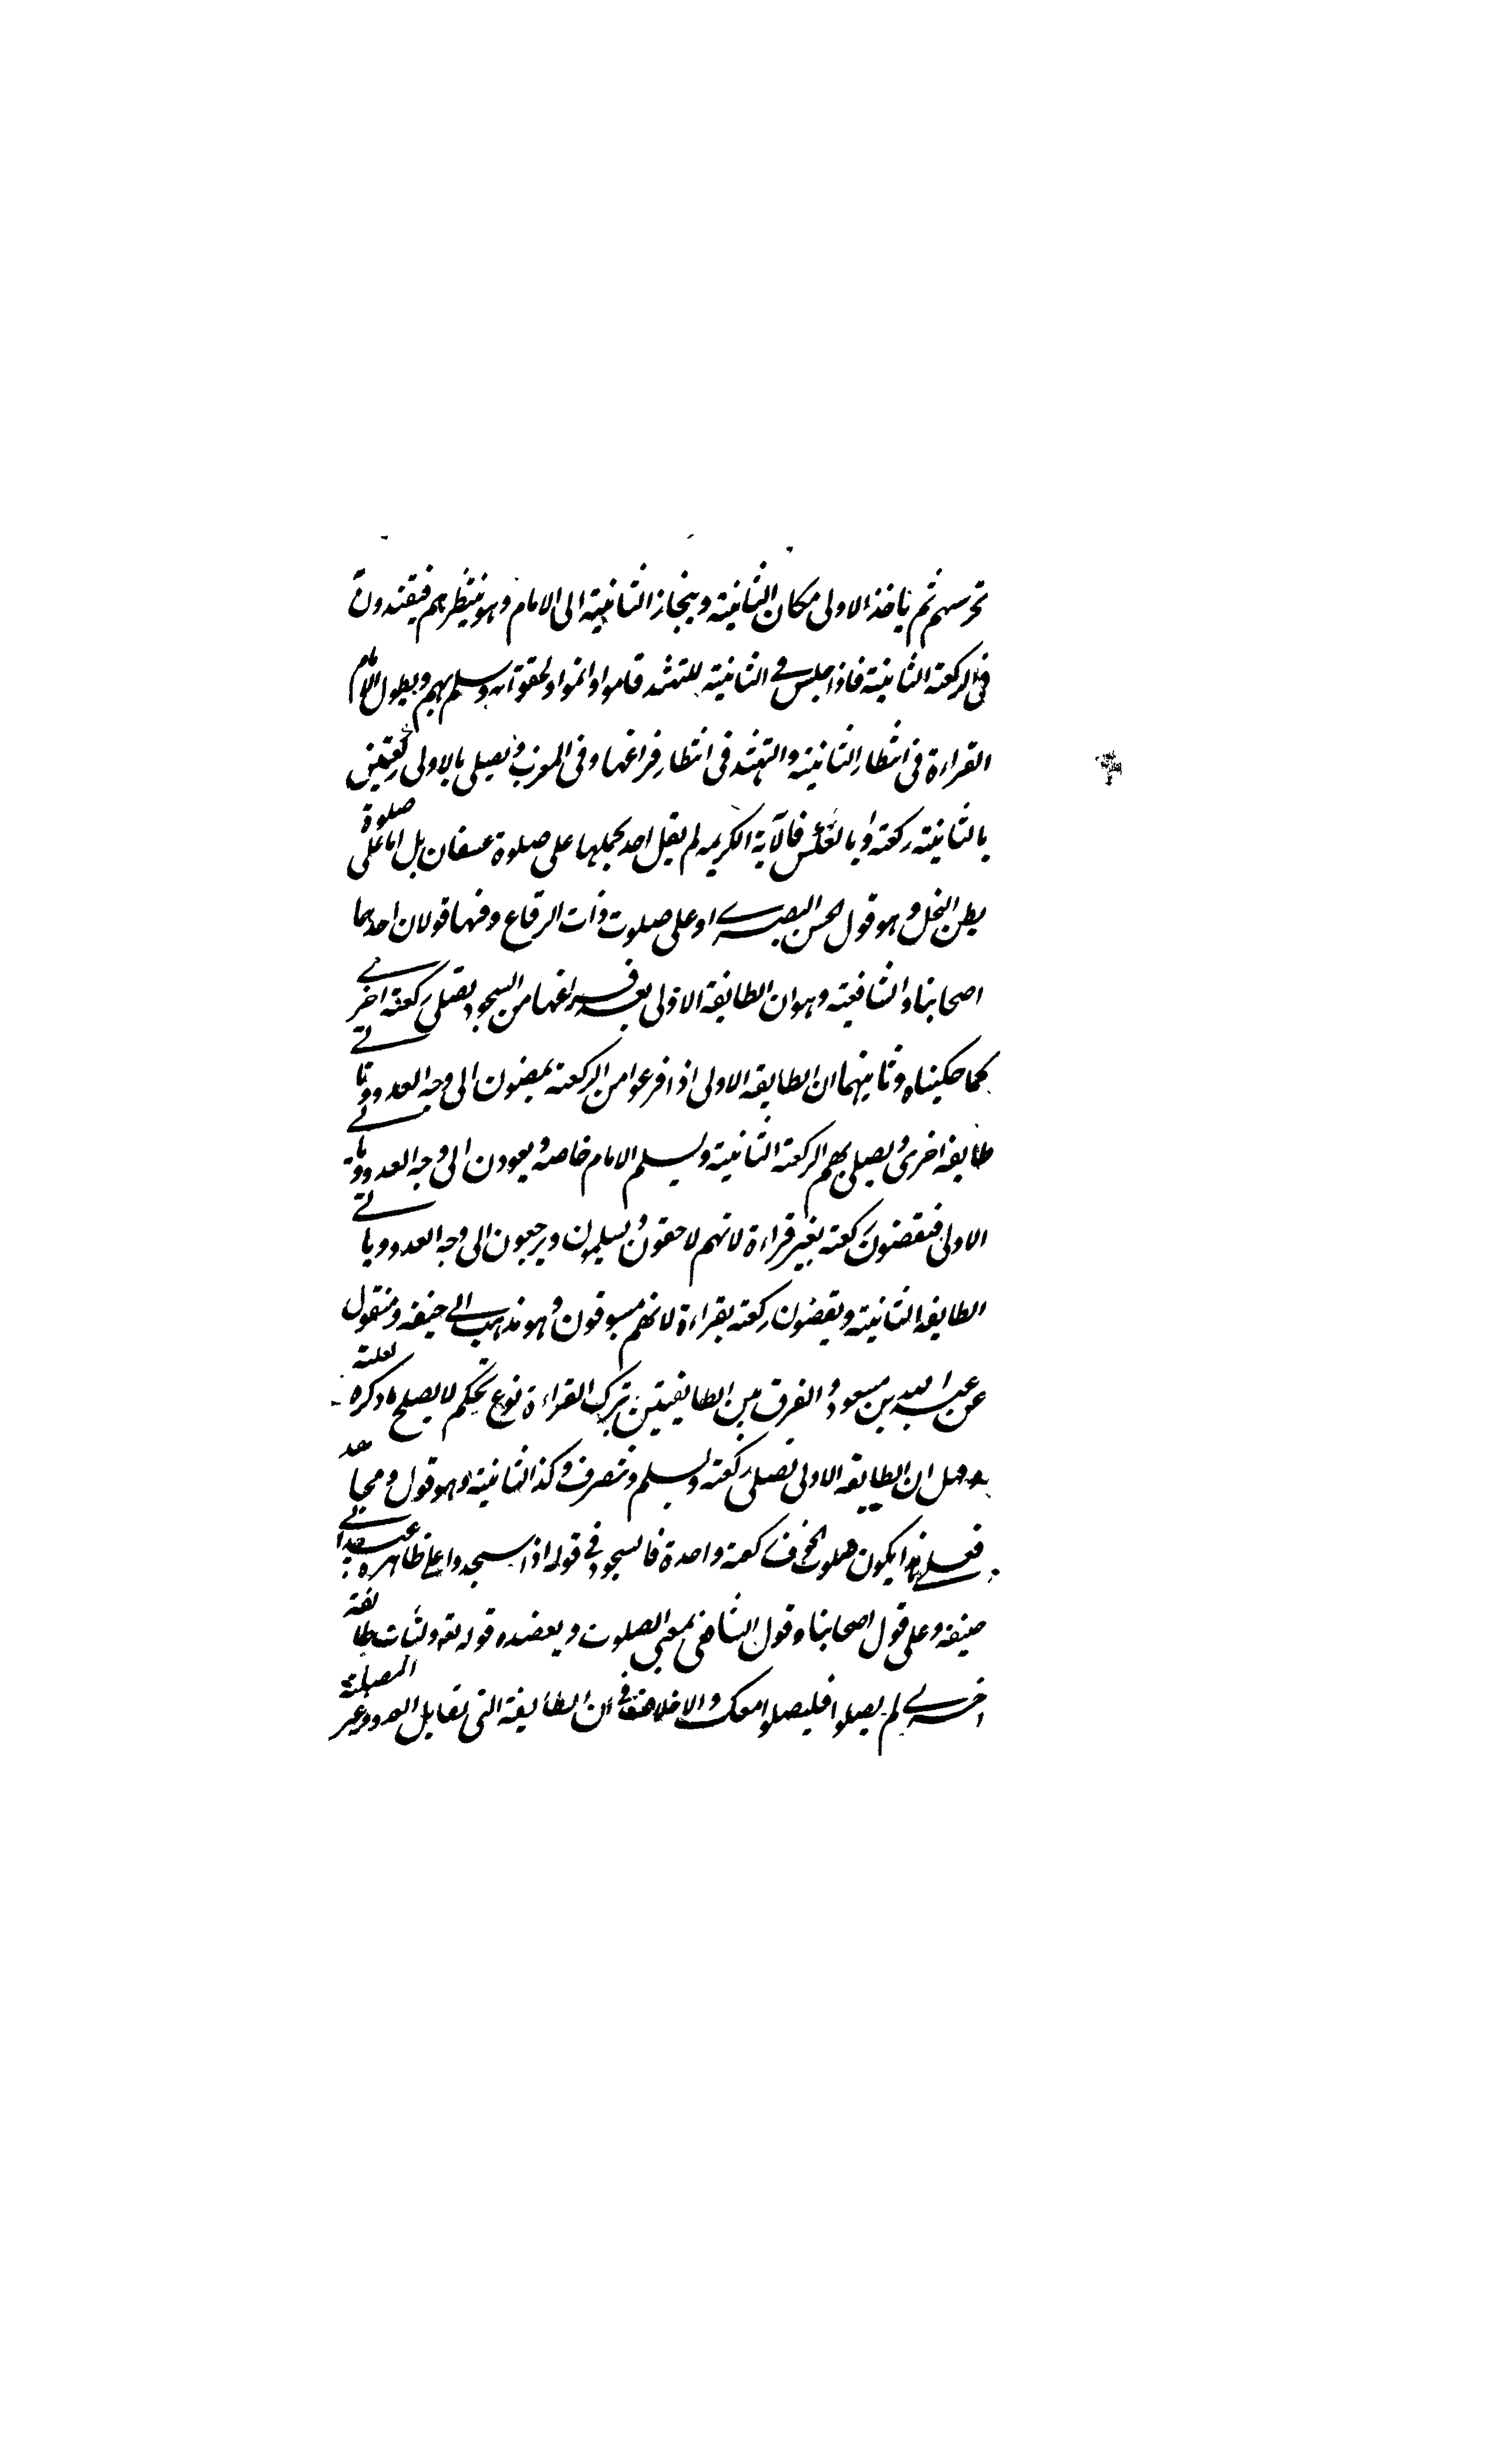 تحرسهم ثم ياخذ الاولى مكان الثانية وينحاز الثانية الى الامام وهو ينتظرهم فيقتدون
فى الركعة الثانية فاذا جلس فى الثانية للتشهد قاموا واتموا ولحقوا به وسلم بهم ويطول الامام
القراءة فى انتظار الثانية والتشهد فى انتظار فراغها وفى المغرب يصلى بالاولى ركعتين
بالثانية ركعة او بالعكس فالآية الكريمه لم يقل احد بحملها على صلوة عسفان بل اما على صلوة
بطن النخل وهو قول الحسن البصرے او على صلوت ذات الرقاع وفيها قولان احدهما
اصحابنا والشافعية وهو ان الطايفة الاولى بعد فراغها من السجود تصلى ركعة اخرے
كما حكيناه وثانيهما ان الطايفة الاولى اذا فرغوا من الركعة يمضون الى وجه العدو وتاتے
طايفة اخرى ويصلى بهم الركعة الثانية ويسلم الامام خاصة ويعودن الى وجه العدو وتاتے
الاولى فيقضون ركعة بغير قراءة لانهم لاحقون ويسلمون ويرجعون الى وجه العدو وياتے
الطايفة الثانية ويقضون ركعة بقراءة لانهم مسبوقون وهو مذهب ابى حنيفة ومنقول
عن عبد الله بن مسعود والفرق بين الطايفيتين بترك القراءة نوع تحكم لا يصلح ما ذكره لعلته
وقيل ان الطايفة الاولى تصلى ركعة وتسلم وتنصرف وكذا الثانية وهو قول ومجاهد
فعلى هذا يكون صلوة الخوف ركعة واحدة فالسجود فى قوله اذا سجدوا على ظاهره عند ابے
حنيفة وعلى قول اصحابنا وقول الشافعى بمعنى الصلوت ويعضده قوله تع ولتات طائفة
اخرے لم يصلوا فليصلوا معك والا خلاصة فى ان الطايفة التى تقابل العدو وغير المصلية